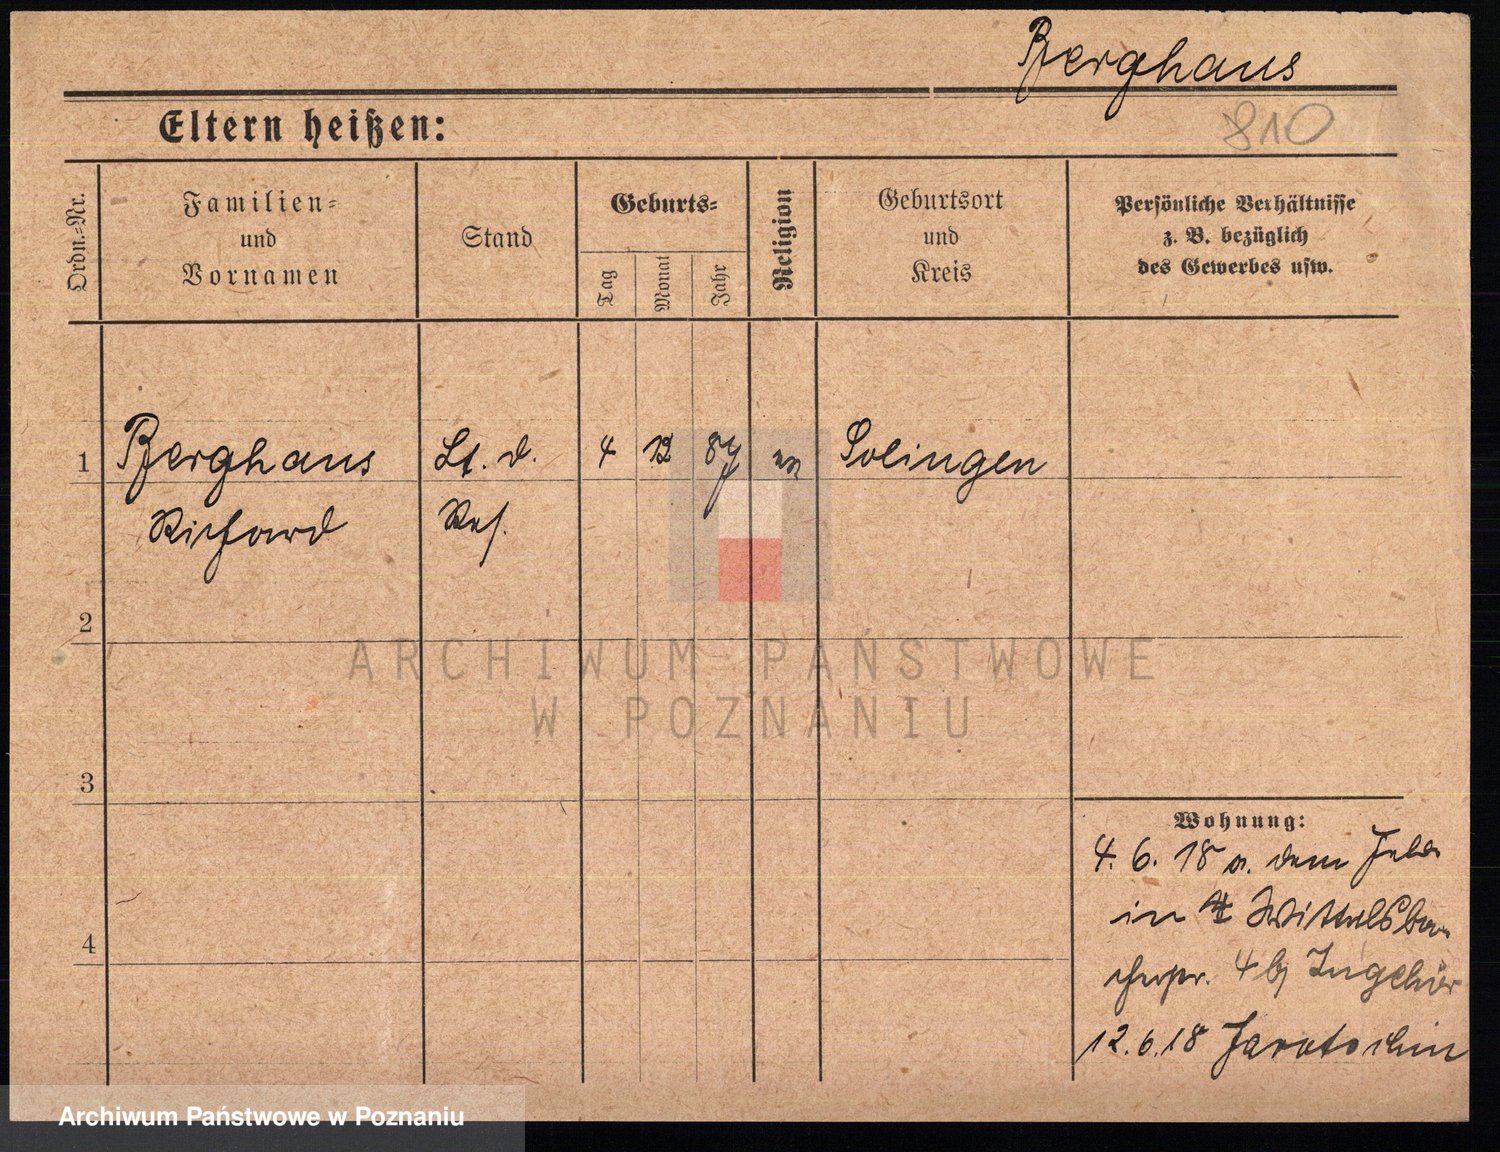 Berghaus
810
Eltern heißen:
Ordn.=Nr.
Familien=
und
Vornamen
Stand
Geburts=
Tag
Monat
Jahr
Religion
Geburtsort
und
Kreis
Persönliche Verhältnisse
z. B. bezüglich
des Gewerbes usw.
1
Berghaus Lt. d. 4 12 87 ev Solingen
Richard Res.
2
ARCHIWUM PAŃSTWOWE
W POZNANIU
3
Wohnung:
4. 6. 18 a. dem Felde
in Wittelsba
4
cherstr. 4 bj
12.6.18 Jarotschin
Archiwum Państwowe w Poznaniu